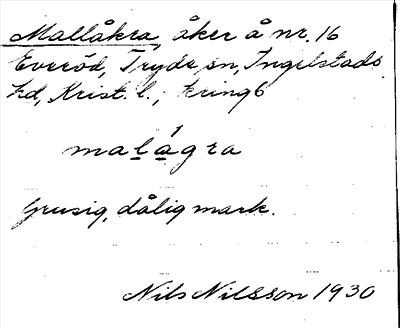 Mallåkra, åker å nr, 16
Everöd, Tryde sn, Ingelstads
hd, Krist. l., kring 6
malágra
Grusig, dålig mark.
Nils Nilsson 1930